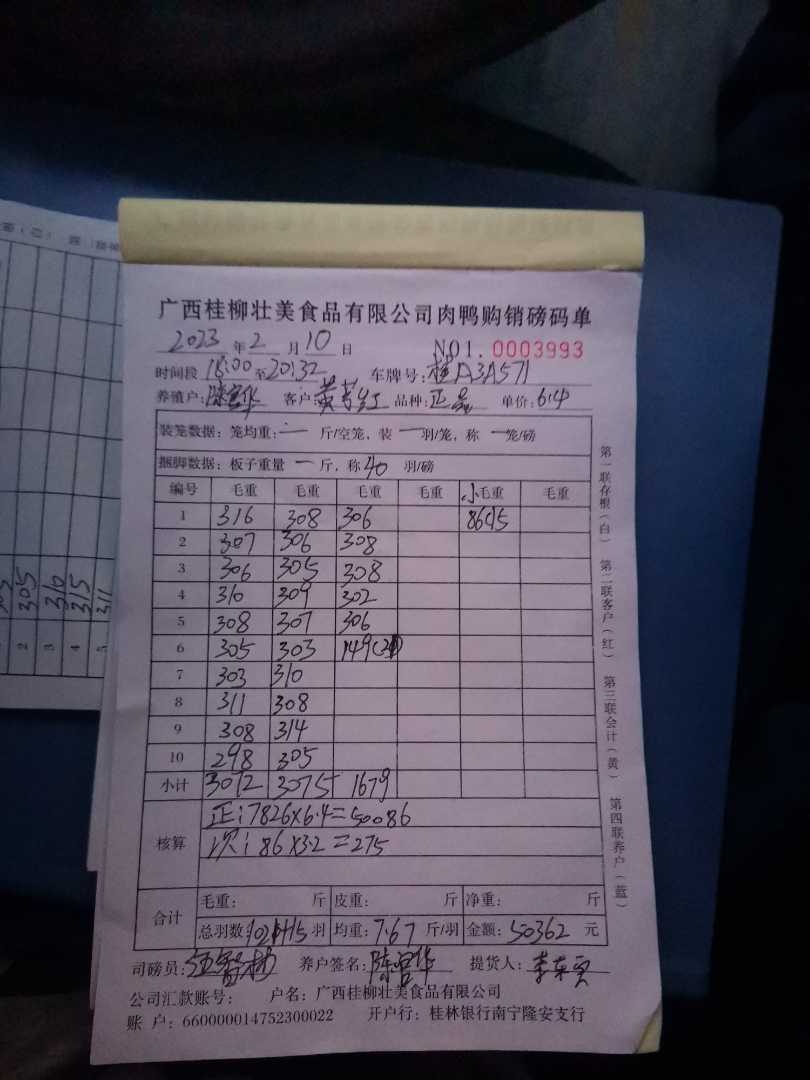 广西桂柳壮美食品有限公司肉鸭购销磅码单
2023 年 2 月 10 日 NO1. 0003993
时间段 18:00 至 20:32 车牌号: 桂A3A571
养殖户: 客户: 品种: 正 单价: 6.4
装笼数据: 笼均重: 一 斤/空笼、装 一 羽/笼, 称 一 笼/磅
捆脚数据: 板子重量 一 斤, 称 40 羽/磅
编号 毛重 毛重 毛重 毛重 小毛重 毛重
1 316 308 306 86(15
2 307 306 308
3 306 305 308
4 310 309 302
5 308 307 306
6 305 303 149
7 303 310
8 311 308
9 308 314
10 298 305
小计 3072 3075 1679
核算 正: 7826×6.4=50086
次: 86×3.2=275
合计 毛重: 斤 皮重: 斤 净重: 斤
总羽数: 羽 均重: 7.67 斤/羽 金额: 50362 元
司磅员: 养户签名: 提货人:
公司汇款账号: 户名: 广西桂柳壮美食品有限公司
账 户: 660000014752300022 开户行: 桂林银行南宁隆安支行
第一联存根(白) 第二联客户(红) 第三联会计(黄) 第四联养户(蓝)
2 305
3 310
4 315
5 311